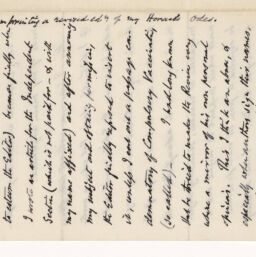 a revised edn of my Horace's Odes.
to return the Editor) became finally, when
I wrote an article for the Independent
Section (which is not paid for - & with
my name affixed) and after assuring
my subject and obtaining permission,
the Editor finally refused to insert
it, unless I cut out a passage con-
demnatory of Compulsory Vaccination
(so called). I had long known
that he tried to make the Review every
where a mirror of his own personal
opinions. This I think an abuse, &
especially when writers sign their names,